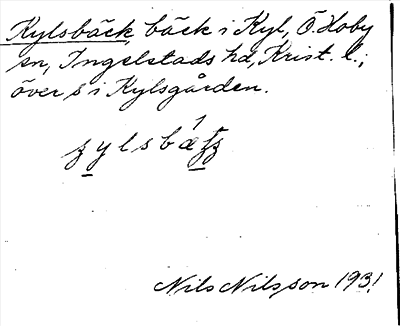 Kylsbäck, bäck i Kyl, Ö. Hoby
sn, Ingelstads hd, Krist. l.;
över s i Kylsgården.
Nils Nilsson 1931